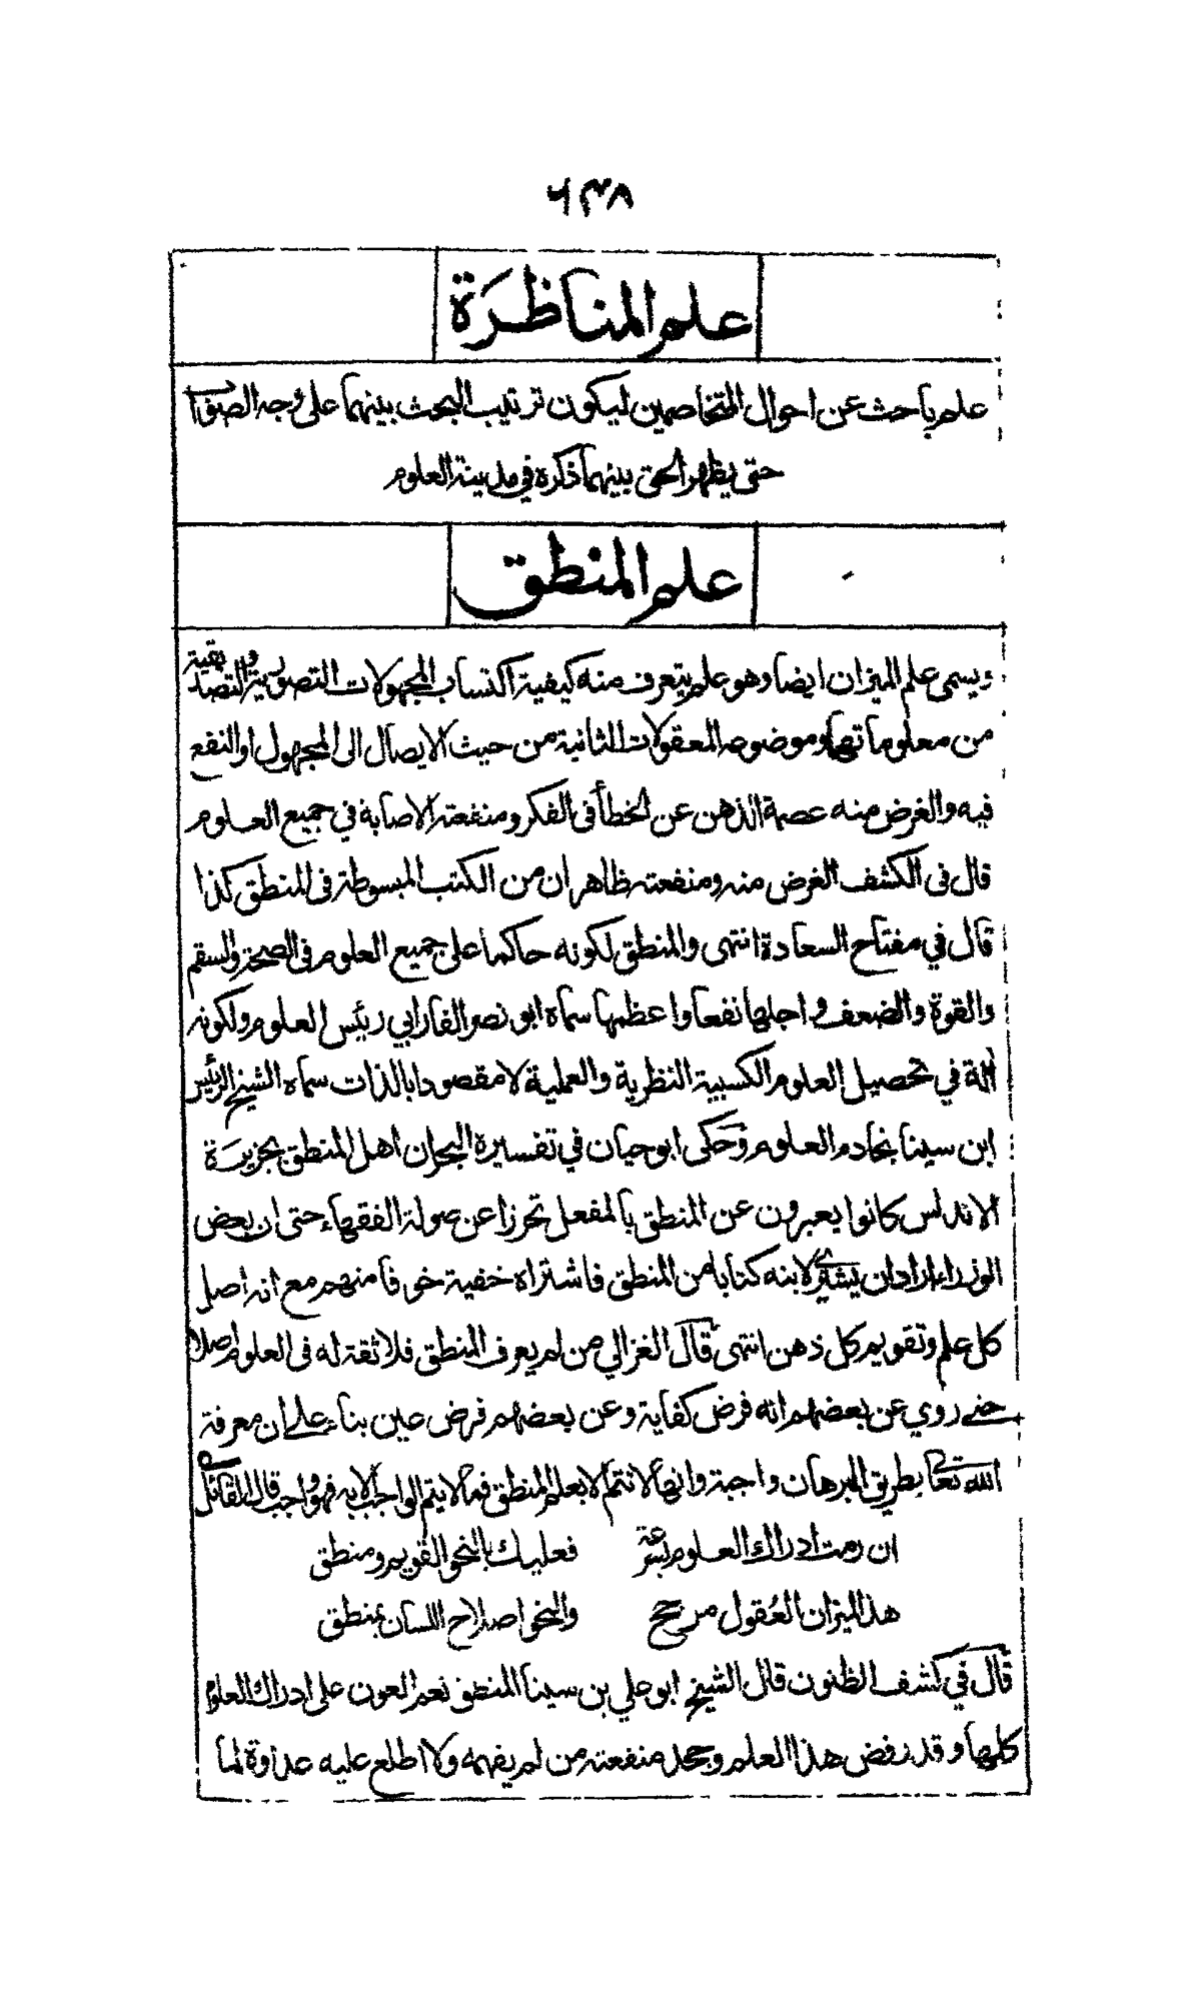 ۶۳۸
علم المناظرة
علم باحث عن احوال المتخاصمين ليكون ترتيب البحث بينهما على وجه الصواب
حتى يظهر الحق بينهما ذكره في مدينة العلوم
علم المنطق
ويسمى علم الميزان ايضا وهو علم يتعرف منه كيفية اكتساب المجهولات التصورية والتصديقية
من معلوماتها وموضوعه المعقولات الثانية من حيث الايصال الى المجهول او النفع
فيه والغرض منه عصمة الذهن عن الخطأ في الفكر ومنفعته الاصابة في جميع العلوم
قال في الكشف الغرض منه ومنفعته ظاهران من الكتب المبسوطة في المنطق كذا
قال في مفتاح السعادة انتهى والمنطق لكونه حاكما على جميع العلوم في الصحة والسقم
والقوة والضعف واجلها نفعا واعظمها سماه ابو نصر الفارابي رئيس العلوم ولكونه
آلة في تحصيل العلوم الكسبية النظرية والعملية لا مقصودا بالذات سماه الشيخ الرئيس
ابن سينا بخادم العلوم وحكى ابو حيان في تفسيره البحر ان اهل المنطق بجزيرة
الاندلس كانوا يعبرون عن المنطق بالمفعل تحرزا عن صولة الفقهاء حتى ان بعض
الوزراء اراد ان يشتري لابنه كتابا من المنطق فاشتراه خفية خوفا منهم مع انه اصل
كل علم وتقويم كل ذهن انتهى قال الغزالي من لم يعرف المنطق فلا ثقة له في العلوم اصلا
حتى روي عن بعضهم انه فرض كفاية وعن بعضهم فرض عين بناء على ان معرفة
الله تعالى بطريق البرهان واجبة وانها لا تتم الا بعلم المنطق فما لا يتم الواجب الا به فهو واجب قال القائل
ان رمت ادراك العلوم بسرعة فعليك بالنحو القويم ومنطق
هذا الميزان العقول مرجح والنحو اصلاح اللسان بمنطق
قال في كشف الظنون قال الشيخ ابو علي بن سينا المنطق نعم العون على ادراك العلوم
كلها وقد رفض هذا العلم وجحد منفعته من لم يفهمه ولا اطلع عليه عداوة لما